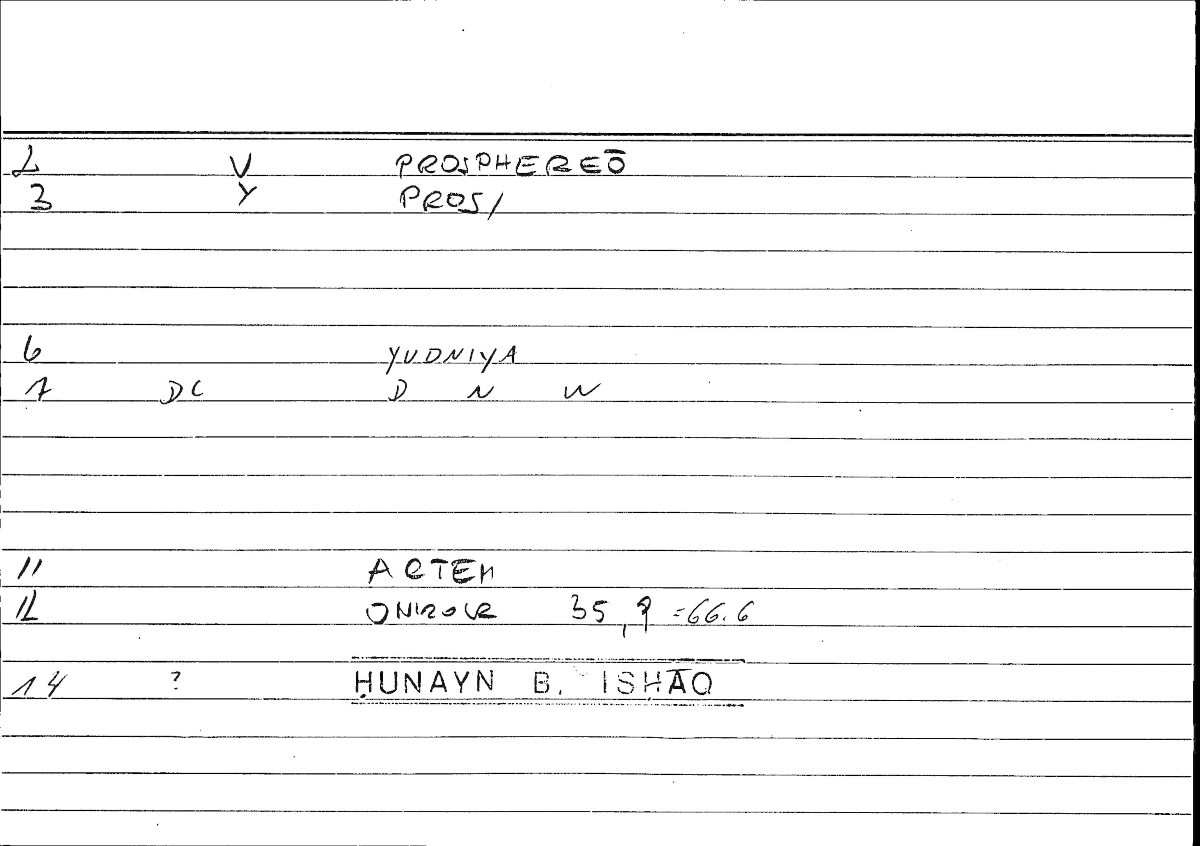 2 V PROSPHEREŌ
3 Y PROS/
6 YUDNIYA
7 DC D N W
11 ARTEM
12 ONIROCR 35,9 =66.6
14 ? ḤUNAYN B. ISḤĀQ